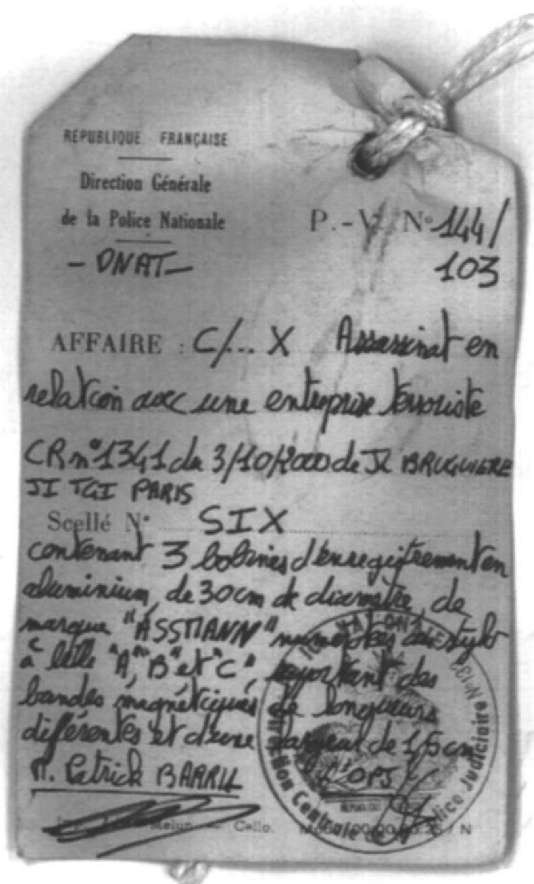 RÉPUBLIQUE FRANÇAISE
Direction Générale
de la Police Nationale
- DNAT -
P.-V. N° 144/
103
AFFAIRE : C/... X Assassinat en
relation avec une entreprise terroriste
CR n° 1341 du 3/10/2000 de JL BRUGUIERE
JI TGI PARIS
Scellé N° SIX
contenant 3 bobines d'enregistrement en
aluminium, de 30cm de diamètre, de
marque "ASSMANN" numérotées au stylo
à bille "A", "B" et "C", comportant des
bandes magnétiques de longueurs
différentes et d'une largeur de 1,5 cm
M. Patrick BARRIL
L'OPJ
Melun — Cello.